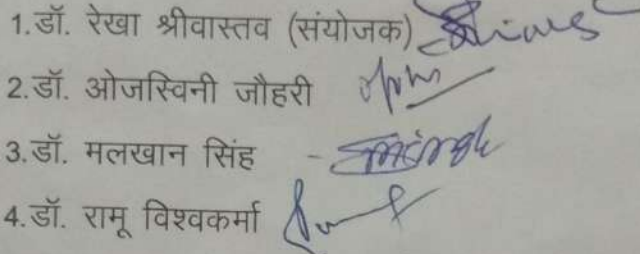 1.डॉ. रेखा श्रीवास्तव (संयोजक)
2.डॉ. ओजस्विनी जौहरी
3.डॉ. मलखान सिंह -
4.डॉ. रामू विश्वकर्मा